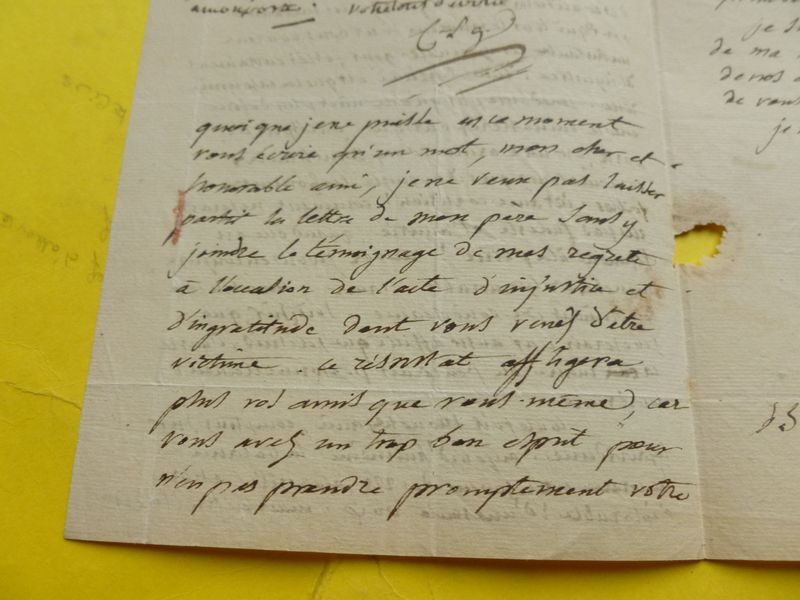 quoique je ne puisse en ce moment
vous écrire qu'un mot, mon cher et
honorable ami, je ne veux pas laisser
partir la lettre de mon pere sans y
joindre le témoignage de mes regrets
à l'occasion de l'acte d'injustice et
d'ingratitude dont vous venez d'etre
victime. ce résultat affligera
plus vos amis que vous-même, car
vous avez un trop bon esprit pour
n'en pas prendre promptement votre
je
de ma
de nos
de vous
je